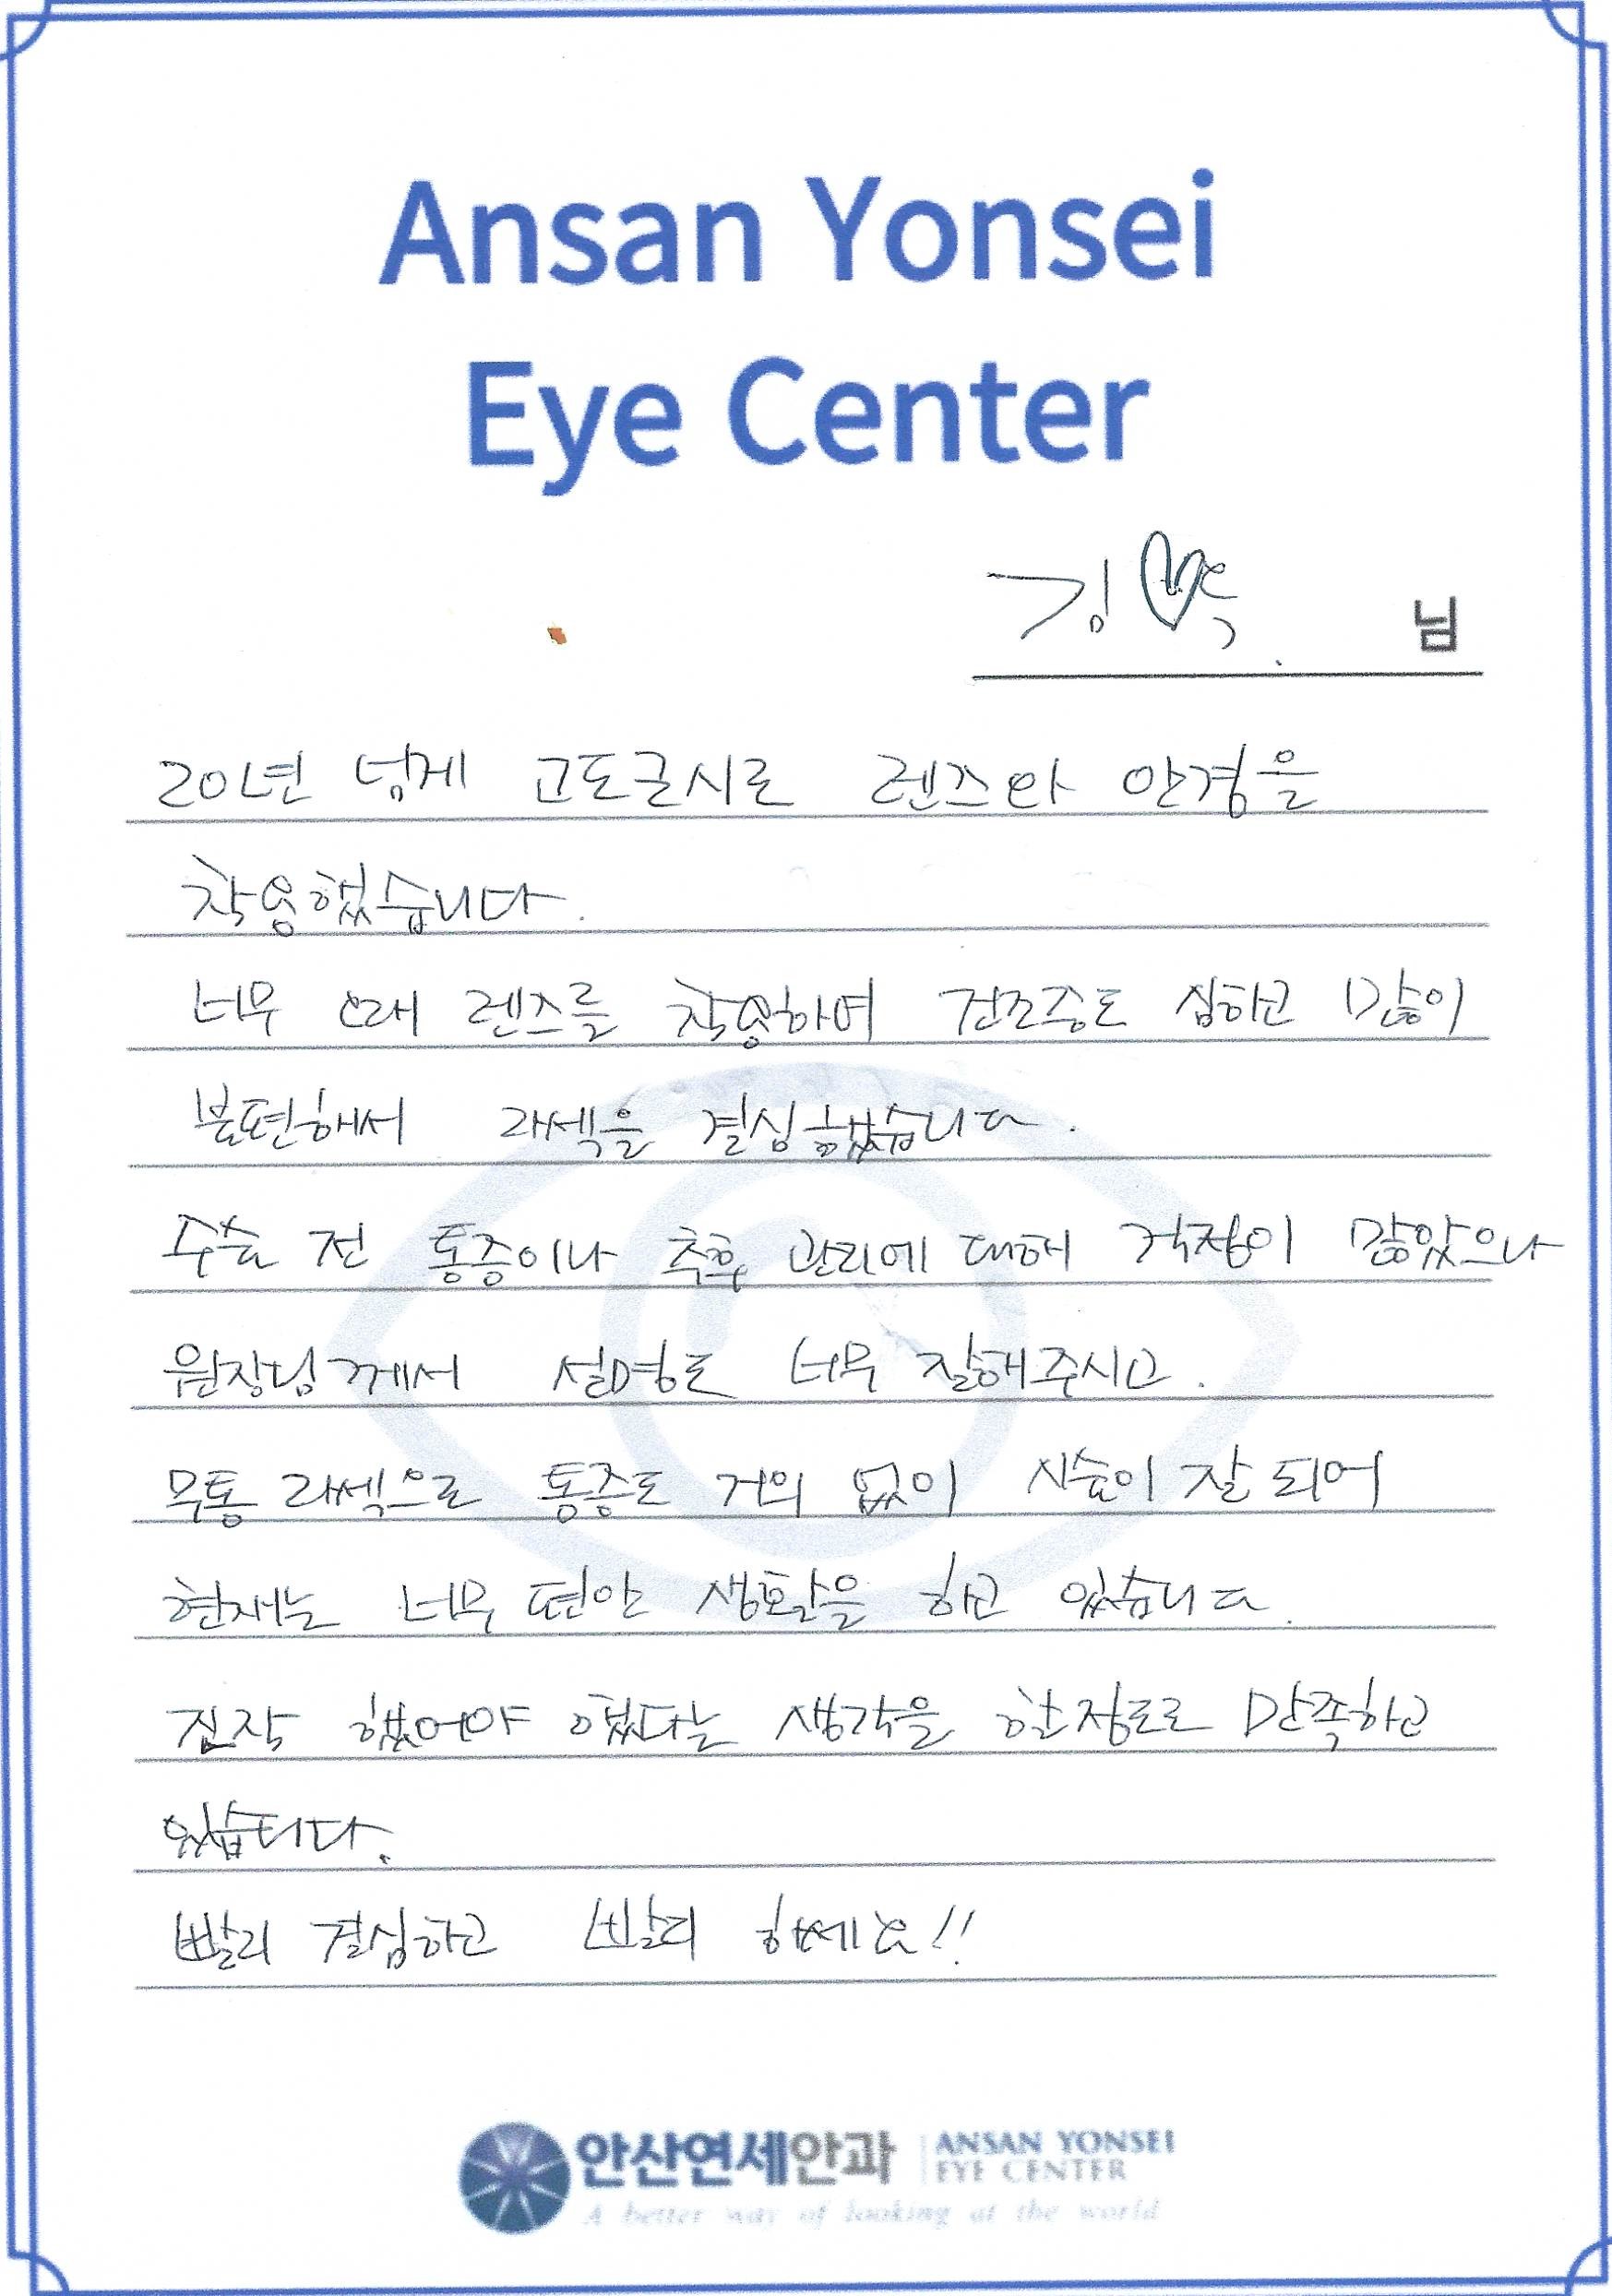 Ansan Yonsei
Eye Center
김 님
20년 넘게 고도근시로 렌즈와 안경을
착용했습니다.
너무 오래 렌즈를 착용하며 건조증도 심하고 많이
불편해서 라섹을 결심했습니다.
수술 전 통증이나 추후 관리에 대해 걱정이 많았으나
원장님께서 설명도 너무 잘해주시고.
무통 라섹으로 통증도 거의 없이 시술이 잘 되어
현재는 너무 편안 생활을 하고 있습니다.
진작 했어야 했다는 생각을 할 정도로 만족하고
있습니다.
빨리 결심하고 빨리 하세요!!
안산연세안과 ANSAN YONSEI
EYE CENTER
A better way of looking at the world